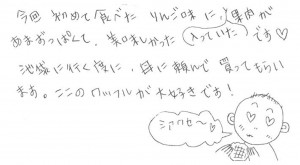 今回 初めて食べた りんご味に、果肉が
あまずっぱくて、美味しかった 入っていた です♡
池袋に行く度に、母に頼んで 買ってもらい
ます。ここのワッフルが大好きです!
シアワセ〜♡